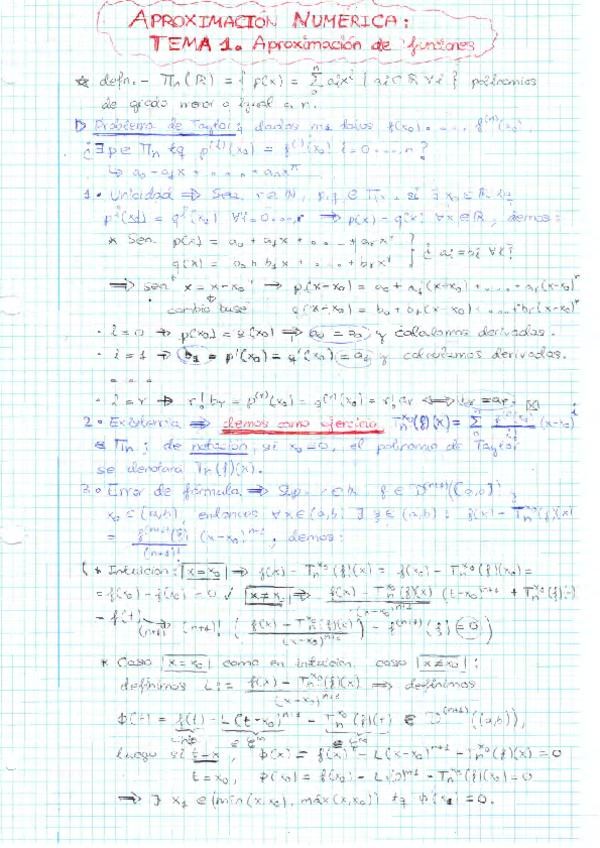 APROXIMACIÓN NUMERICA:
TEMA 1. Aproximación de funciones
☆ defn.- Πn(R) = { p(x) = Σ aᵢxⁱ | aᵢ ∈ R ∀i } polinomios
de grado menor o igual a n.
▷ Problema de Taylor; dados f(x₀), ..., f⁽ⁿ⁾(x₀)
¿∃ p ∈ Πn tq p⁽ⁱ⁾(x₀) = f⁽ⁱ⁾(x₀) i = 0...n?
1. Unicidad ⇒ Sea
∀i=0...n ⇒ p(x) = q(x) ∀x ∈ R, demos:
* Sea p(x) = a₀ + a₁x + ... + aᵣxʳ
q(x) = b₀ + b₁x + ... + bᵣxʳ } ¿ aᵢ = bᵢ ∀i?
⇒ sea x = x-x₀ → p(x-x₀) = a₀ + a₁(x-x₀) + ... + aᵣ(x-x₀)ʳ
cambio base q(x-x₀) = b₀ + b₁(x-x₀) + ... + bᵣ(x-x₀)ʳ
· i=0 → p(x₀) = q(x₀) ⇒ y calculamos derivadas.
· i=1 → b₁ = p'(x₀) = q'(x₀) = a₁ y calculamos derivadas.
...
· i=r → r! bᵣ = p⁽ʳ⁾(x₀) = q⁽ʳ⁾(x₀) = r! aᵣ ⟺ bᵣ = aᵣ.
2. Existencia ⇒ demos como ejercicio
∈ Πn; de notación, si x₀=0, el polinomio de Taylor
se denotará Tn(f)(x).
3. Error de fórmula ⇒ Sup.
x₀ ∈ (a,b), entonces ∀x ∈ (a,b) ∃ ξ ∈ (a,b) : f(x) - Tn^x₀(f)(x)
= f⁽ⁿ⁺¹⁾(ξ)/(n+1)! (x-x₀)ⁿ⁺¹, demos:
* Intuición: |x=x₀| ⇒ f(x) - Tn^x₀(f)(x) = f(x₀) - Tn^x₀(f)(x₀) =
= f(x₀) - f(x₀) = 0 ✓ |x≠x₀| ⇒ f(x) - Tn^x₀(f)(x)/(x-x₀)ⁿ⁺¹ (t-x₀)ⁿ⁺¹ + Tn^x₀(f)(t)
- f(t) → (n+1)! (f(x) - Tn^x₀(f)(x)/(x-x₀)ⁿ⁺¹) - f⁽ⁿ⁺¹⁾(ξ) = 0
* Caso |x=x₀| como en intuición, caso |x≠x₀|:
definimos L := f(x) - Tn^x₀(f)(x)/(x-x₀)ⁿ⁺¹ ⇒ definimos
φ(t) = f(t) - L(t-x₀)ⁿ⁺¹ - Tn^x₀(f)(t) ∈ D⁽ⁿ⁺¹⁾((a,b)),
luego si t=x, φ(x) = f(x) - L(x-x₀)ⁿ⁺¹ - Tn^x₀(f)(x) = 0
t=x₀, φ(x₀) = f(x₀) - L(0)ⁿ⁺¹ - Tn^x₀(f)(x₀) = 0
⇒ ∃ x₁ ∈ (min(x,x₀), máx(x,x₀)) tq φ'(x₁) = 0.